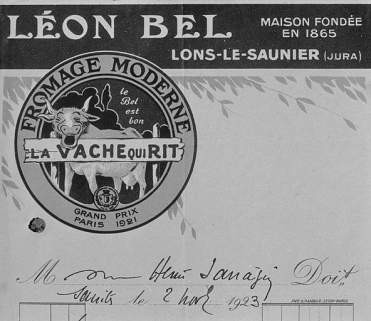 LÉON BEL
MAISON FONDÉE
EN 1865
LONS-LE-SAUNIER (JURA)
FROMAGE MODERNE
le
Bel
est
bon
LA VACHE QUI RIT
GRAND PRIX
PARIS 1921
M Henri Doit
le 2 1923